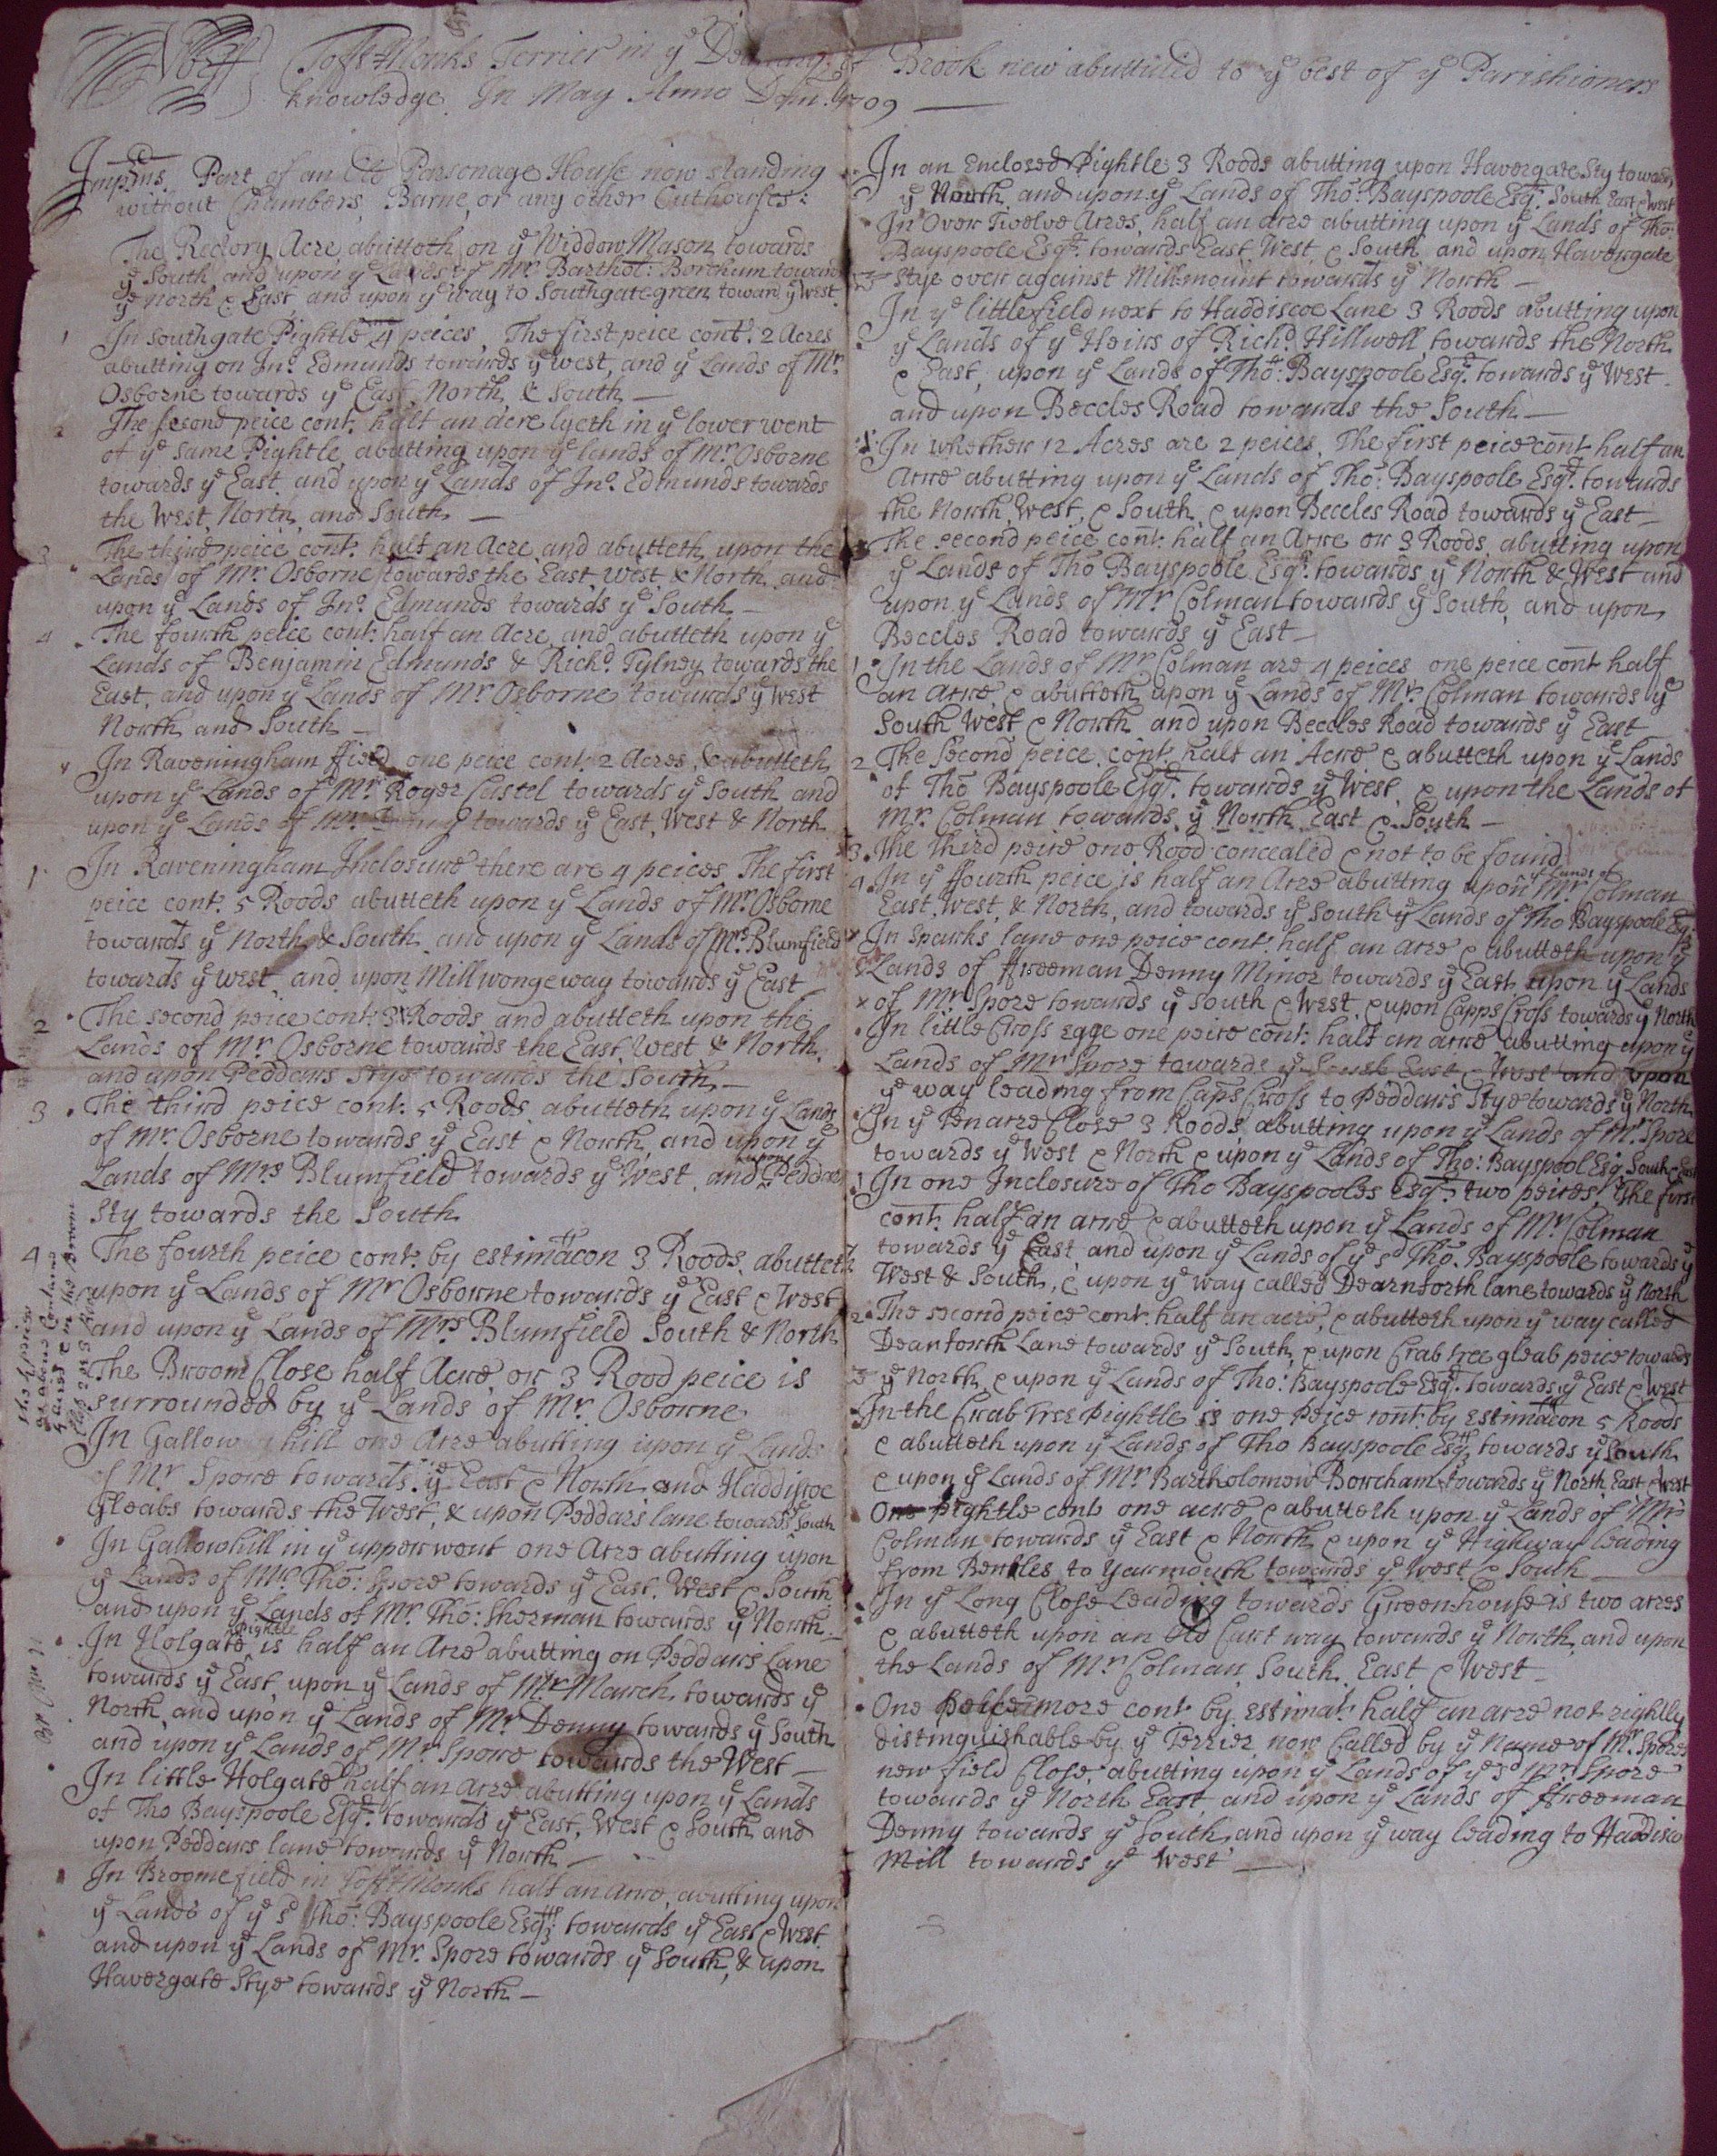 Norff Toft Monks Terrier in ye Deanry of Brook new abuttilled to ye best of ye Parishioners
knowledge In May Anno Dom. 1709
Impms. Part of an Old Parsonage House now standing
without Chambers, Barne, or any other Outhouses:
The Rectory Acre abutteth on ye Widdow Mason towards
ye South and upon ye Lands of Mr Barthol: Borchum toward
ye North & East and upon ye way to Southgate green toward ye West.
1 In Southgate Pightle 4 peices, The first peice cont. 2 Acres
abutting on Jno. Edmunds towards ye west, and ye Lands of Mr.
Osborne towards ye East, North, & South —
2 The second peice cont. half an acre lyeth in ye lower went
of ye same Pightle, abutting upon ye lands of Mr. Osborne
towards ye East and upon ye Lands of Jno. Edmunds towards
the West, North, and South —
3 The third peice cont. half an Acre, and abutteth upon the
Lands of Mr. Osborne towards the East, West & North, and
upon ye Lands of Jno. Edmunds towards ye South —
4 The fourth peice cont. half an Acre and abutteth upon ye
Lands of Benjamin Edmunds & Richd. Tylney towards the
East, and upon ye Lands of Mr Osborne towards ye West
North and South —
In Raveningham ffield one peice cont. 2 Acres, & abutteth
upon ye Lands of Mr. Roger Castel towards ye South and
upon ye Lands of towards ye East, West & North
1 In Raveningham Inclosure there are 4 peices. The first
peice cont. 5 Roods abutteth upon ye Lands of Mr. Osborne
towards ye North & South and upon ye Lands of Mrs. Blumfield
towards ye west, and upon Millwongeway towards ye East —
2 The second peice cont. 3 Roods, and abutteth upon the
Lands of Mr. Osborne towards the East, West & North,
and upon Peddars Stye towards the South, —
3 The third peice cont. 5 Roods abutteth upon ye Lands
of Mr. Osborne towards ye East & North, and upon ye
Lands of Mrs Blumfield towards ye West, and upon Peddars
Sty towards the South
4 The fourth peice cont. by estimacon 3 Roods, abutteth
upon ye Lands of Mr Osborne towards ye East & West
and upon ye Lands of Mrs Blumfield South & North
The Broom Close half Acre, or 3 Rood peice is
surrounded by ye Lands of Mr. Osborne
In Gallow hill one Acre abutting upon ye Lands
of Mr Spore towards ye East & North and Haddiscoe
Gleabs towards the West, & upon Peddars lane towards ye South
In Gallowhill in ye upper went one Acre abutting upon
ye Lands of Mr. Tho: Spore towards ye East, West & South
and upon ye Lands of Mr. Tho: Sherman towards ye North —
In Holgate Pightle is half an Acre abutting on Peddars Lane
towards ye East, upon ye Lands of Mr March towards ye
North, and upon ye Lands of Mr Denny towards ye South
and upon ye Lands of Mr. Spore towards the West —
In little Holgate half an Acre abutting upon ye Lands
of Tho Bayspoole Esqr. towards ye East, West & South and
upon Peddars lane towards ye North —
In Broome field in Toft Monks half an Acre, abutting upon
ye Lands of ye sd Tho: Bayspoole Esqr towards ye East & West
and upon ye Lands of Mr. Spore towards ye South, & upon
Havergate Stye towards ye North —
In an Enclosed Pightle 3 Roods abutting upon Havergate Sty towards
ye North, and upon ye Lands of Tho: Bayspoole Esqr. South East & West
In Over Twelve Acres, half an Acre abutting upon ye Lands of Tho:
Bayspoole Esqr. towards East, West & South and upon Havergate
Stye over against Millmount towards ye North —
In ye little field next to Haddiscoe Lane 3 Roods abutting upon
ye Lands of ye Heirs of Richd. Hillwell, towards the North
& East, upon ye Lands of Tho: Bayspoole Esqr. towards ye West
and upon Beccles Road towards the South —
1 In Whether 12 Acres are 2 peices. The first peice cont half an
Acre abutting upon ye Lands of Tho: Bayspoole Esqr. towards
the North, West, & South, & upon Beccles Road towards ye East —
The second peice cont. half an Acre or 3 Roods, abutting upon
ye Lands of Tho Bayspoole Esqr. towards ye North & West and
upon ye Lands of Mr Colman towards ye South, and upon
Beccles Road towards ye East —
1 In the Lands of Mr Colman are 4 peices one peice cont half
an Acre, & abutteth upon ye Lands of Mr. Colman towards ye
South West & North and upon Beccles Road towards ye East
2 The Second peice cont. half an Acre & abutteth upon ye Lands
of Tho Bayspoole Esqr. towards ye West, & upon the Lands of
Mr. Colman towards ye North East & South —
3 The Third peice one Rood concealed & not to be found
4 In ye ffourth peice is half an Acre abutting upon ye Lands of Mr Colman
East, West, & North, and towards ye South ye Lands of Tho Bayspoole Esqr
In Sparks lane one peice cont. half an acre & abutteth upon ye
Lands of ffreeman Denny Minor towards ye East upon ye Lands
of Mr Spore towards ye South & West, & upon Capps Cross towards ye North
In little Cross Egge one peice cont. half an acre abutting upon ye
Lands of Mr Spore towards ye South East & West and upon
ye way leading from Caps Cross to Peddars Stye towards ye North
In ye Tenacre Close 3 Roods abutting upon ye Lands of Mr. Spore
towards ye West & North & upon ye Lands of Tho: Bayspool Esqr South & East
1 In one Inclosure of Tho Bayspooles Esqr. two peices The first
cont. half an acre & abutteth upon ye Lands of Mr Colman
towards ye East and upon ye Lands of ye sd Tho. Bayspoole towards ye
West & South, & upon ye way called Dearnforth lane towards ye North
2 The second peice cont. half an acre, & abutteth upon ye way called
Deanforth Lane towards ye South, & upon Crab tree gleab peice towards
ye North & upon ye Lands of Tho: Bayspoole Esqr. Towards ye East & West
In the Crab Tree Pightle is one Peice cont. by Estimacon 5 Roods
& abutteth upon ye Lands of Tho Bayspoole Esqr towards ye South
& upon ye Lands of Mr Bartholomew Borcham towards ye North East & West
One pightle cont one acre & abutteth upon ye Lands of Mr
Colman towards ye East & North & upon ye Highway leading
from Beccles to Yarmouth towards ye West & South —
In ye Long Close Leading towards Greenhouse is two acres
& abutteth upon an Old Cart way towards ye North, and upon
the Lands of Mr Colman, South, East, & West —
One Peice more cont by estimat. half an acre not rightly
distinguishable by ye Terrier now Called by ye Name of Mr. Spores
new field Close, abutting upon ye Lands of ye sd Mr Spore
towards ye North East and upon ye Lands of ffreeman
Denny towards ye South, and upon ye way leading to Haddisco
Mill towards ye West —